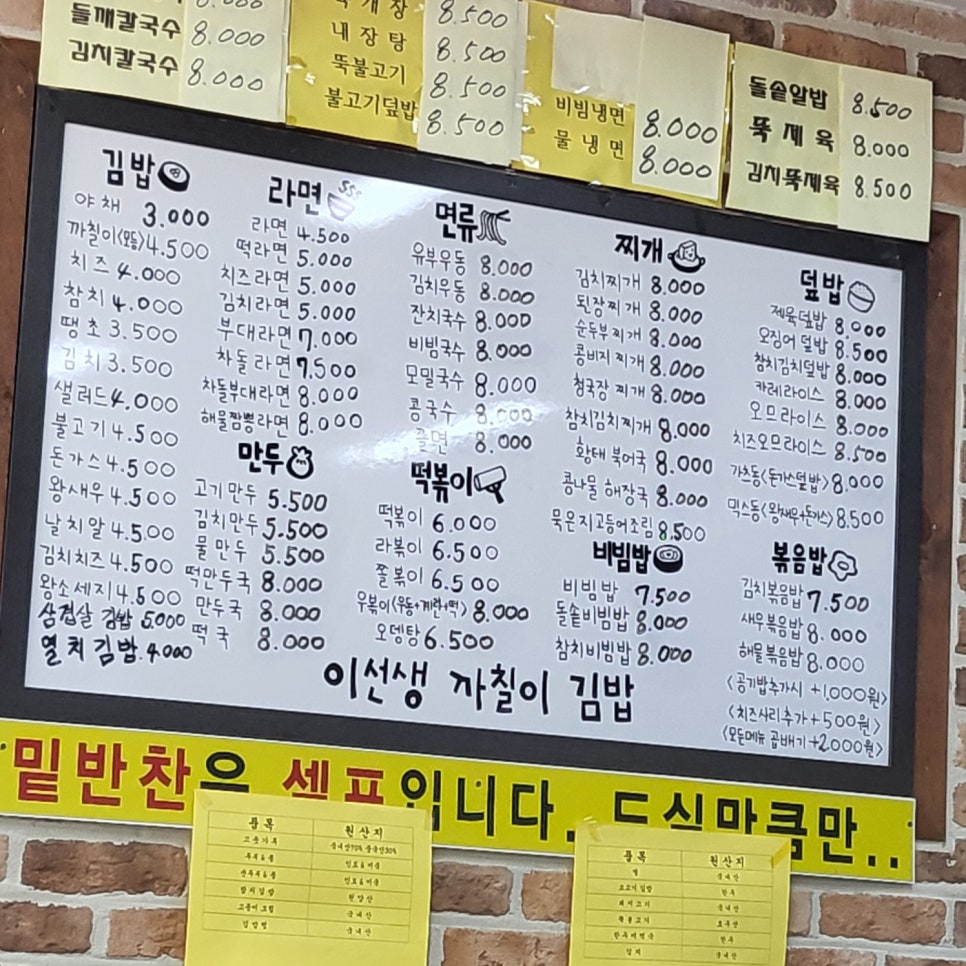 들깨칼국수 8.000
김치칼국수 8.000
8.500
내장탕 8.500
뚝불고기 8.500
불고기덮밥 8.500
비빔냉면 8.000
물냉면 8.000
돌솥알밥 8.500
뚝제육 8.000
김치뚝제육 8.500
김밥
야채 3.000
까칠이(모듬) 4.500
치즈 4.000
참치 4.000
땡초 3.500
김치 3.500
샐러드 4.000
불고기 4.500
돈가스 4.500
왕새우 4.500
날치알 4.500
김치치즈 4.500
왕소세지 4.500
삼겹살 김밥 5.000
멸치김밥 4.000
라면
라면 4.500
떡라면 5.000
치즈라면 5.000
김치라면 5.000
부대라면 7.000
차돌라면 7.500
차돌부대라면 8.000
해물짬뽕라면 8.000
만두
고기만두 5.500
김치만두 5.500
물만두 5.500
떡만두국 8.000
만두국 8.000
떡국 8.000
면류
유부우동 8.000
김치우동 8.000
잔치국수 8.000
비빔국수 8.000
모밀국수 8.000
콩국수 8.000
쫄면 8.000
떡볶이
떡볶이 6.000
라볶이 6.500
쫄볶이 6.500
우볶이(우동+계란+떡) 8.000
오뎅탕 6.500
찌개
김치찌개 8.000
된장찌개 8.000
순두부찌개 8.000
콩비지찌개 8.000
청국장찌개 8.000
참치김치찌개 8.000
황태북어국 8.000
콩나물 해장국 8.000
묵은지고등어조림 8.500
비빔밥
비빔밥 7.500
돌솥비빔밥 8.000
참치비빔밥 8.000
덮밥
제육덮밥 8.000
오징어덮밥 8.500
참치김치덮밥 8.000
카레라이스 8.000
오므라이스 8.000
치즈오므라이스 8.500
가츠동(돈가스덮밥) 8.000
믹스동(왕새우+돈가스) 8.500
볶음밥
김치볶음밥 7.500
새우볶음밥 8.000
해물볶음밥 8.000
(공기밥추가시 +1,000원)
(치즈사리추가 +500원)
(모든메뉴 곱배기 +2,000원)
이선생 까칠이 김밥
밑반찬은 셀프입니다. 드실만큼만..
품목 원산지
품목 원산지